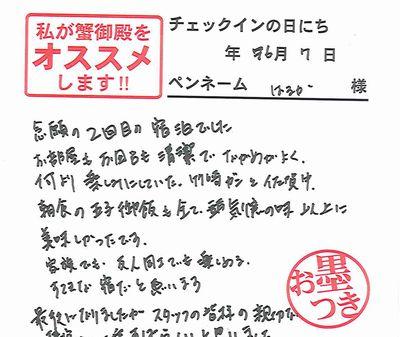 私が蟹御殿を
オススメ
します!!
チェックインの日にち
年 6月 7日
ペンネーム 様
念願の2回目の宿泊でした
お部屋もお風呂も清潔でながめがよく、
何より楽しみにしていた、竹崎ガニと佐賀牛、
朝食の玉子御飯も全て雰気の味以上に
美味しかったです。
家族でも友人同士でも楽しめる、
すてきな宿だと思います
最後になりましたがスタッフの皆様の親切な
と思いました
お墨つき